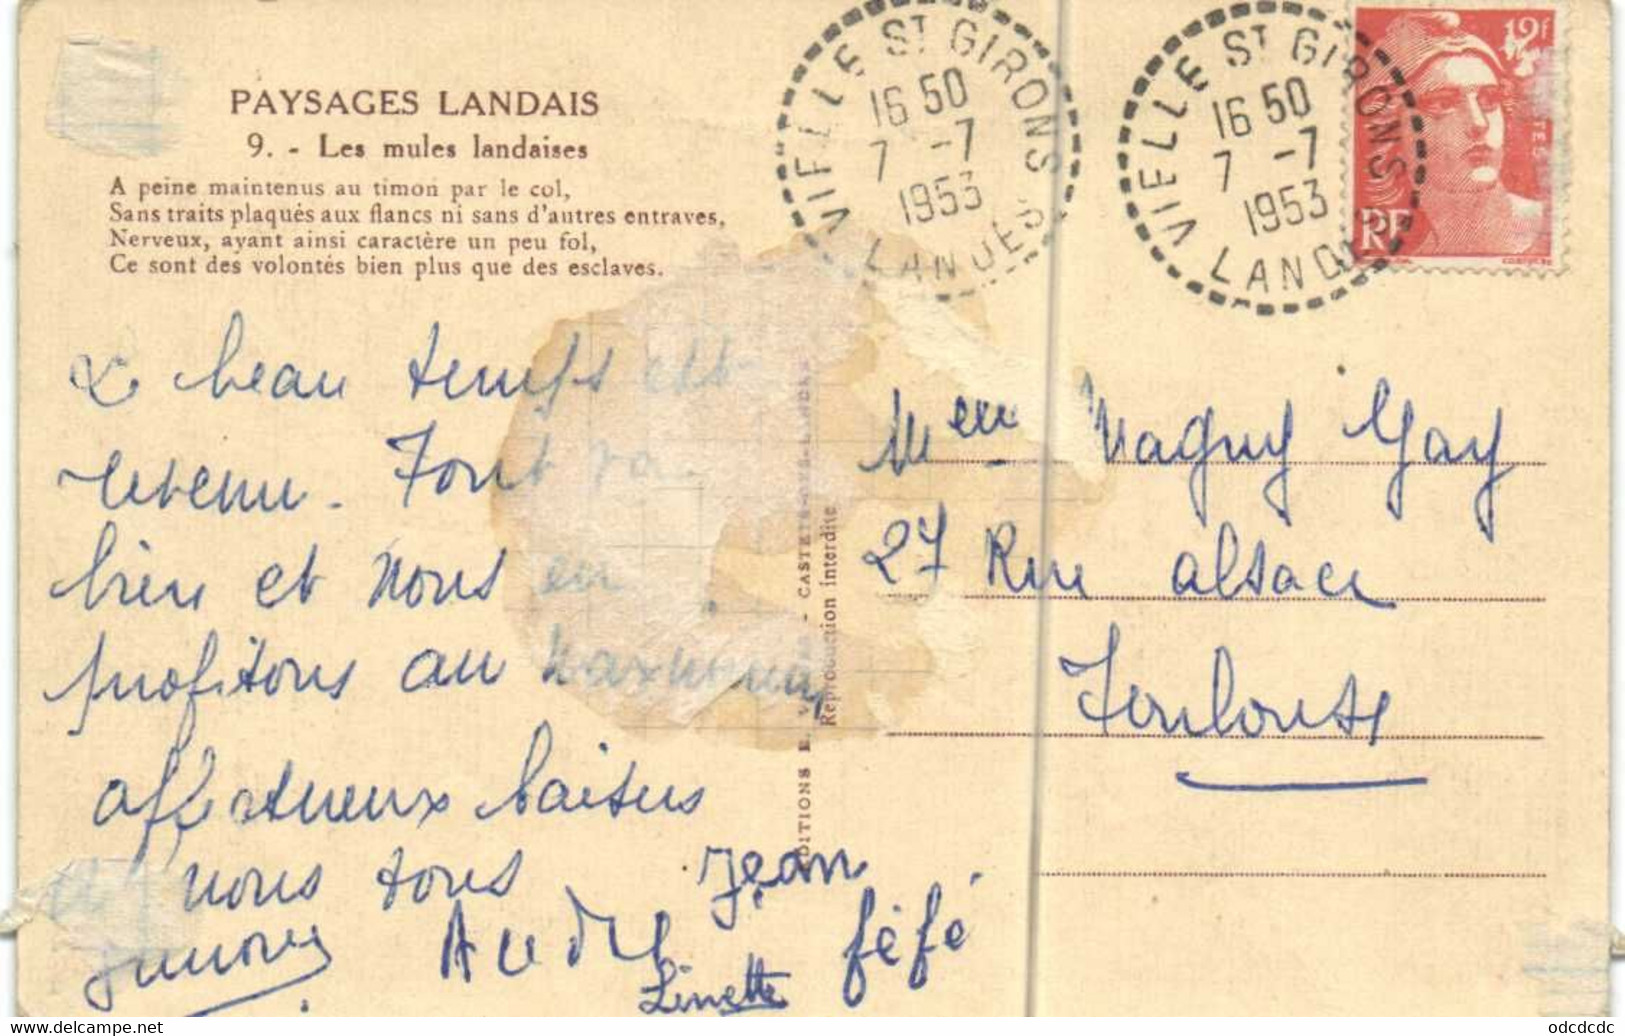 PAYSAGES LANDAIS
9. - Les mules landaises
A peine maintenus au timon par le col,
Sans traits plaqués aux flancs ni sans d'autres entraves,
Nerveux, ayant ainsi caractère un peu fol,
Ce sont des volontés bien plus que des esclaves.
VIELLE ST GIRONS
16 50
7 -7
1953
LANDES
VIELLE ST GIRONS
16 50
7 -7
1953
LANDES
12f
POSTES
RF
Le beau temps est
revenu. Tout va
bien et nous en
profitons au maximum
affectueux baisers
de nous tous
Jean
André
féfé
Linette
ÉDITIONS E. - CASTETS-DES-LANDES
Reproduction interdite
Mme Maguy Gay
27 Rue Alsace
Toulouse
odcdcdc